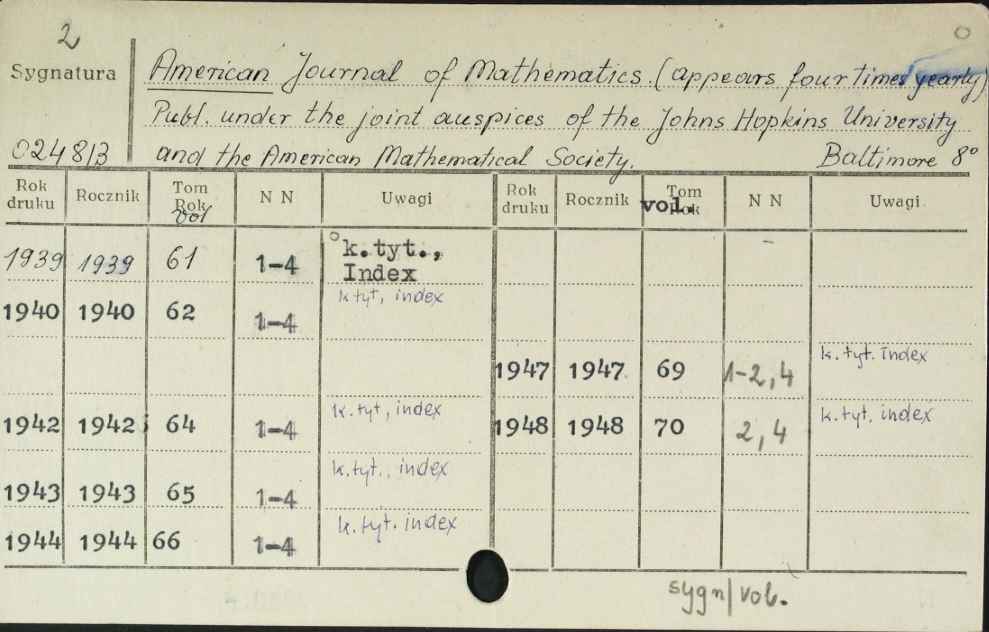 2
Sygnatura American Journal of Mathematics. (appears four times yearly)
Publ. under the joint auspices of the Johns Hopkins University
0248/3 and the American Mathematical Society. Baltimore 8°
Rok druku Rocznik Tom Rok vol N N Uwagi Rok druku Rocznik Tom Rok vol. N N Uwagi
1939 1939 61 1-4 k.tyt., Index
1940 1940 62 1-4 k.tyt, index
1947 1947 69 1-2, 4 k. tyt. Index
1942 1942 64 1-4 k.tyt, index 1948 1948 70 2, 4 k.tyt, index
1943 1943 65 1-4 k.tyt., index
1944 1944 66 1-4 k.tyt. index
sygn/vol.